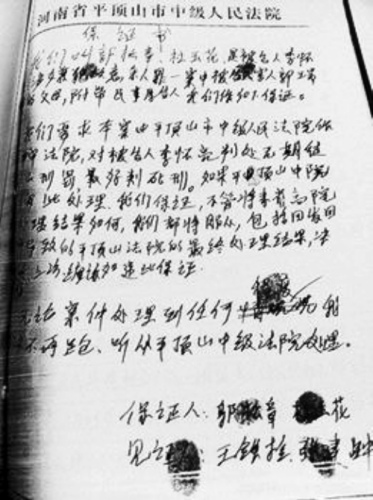 河南省平顶山市中级人民法院
保证书
我们叫郭松章、杜玉花,是被告人李怀
亮 案中被害人郭
的父母,附带民事原告人 我们作如下保证。
我们要求本案由平顶山市中级人民法院作
审法院,对被告人李怀亮判处无期徒
以上刑罚,最好判死刑。如果平顶山中院
此处理,我们保证,不管将来省高院
处理结果如何,我们都将服从,包括因发回
导致的平顶山法院的最终处理结果,决
上访
无论案件处理到任何 我
不再上 、听从平顶山中级法院处理。
保证人:郭松章 杜玉花
见证人:王铁拴、张